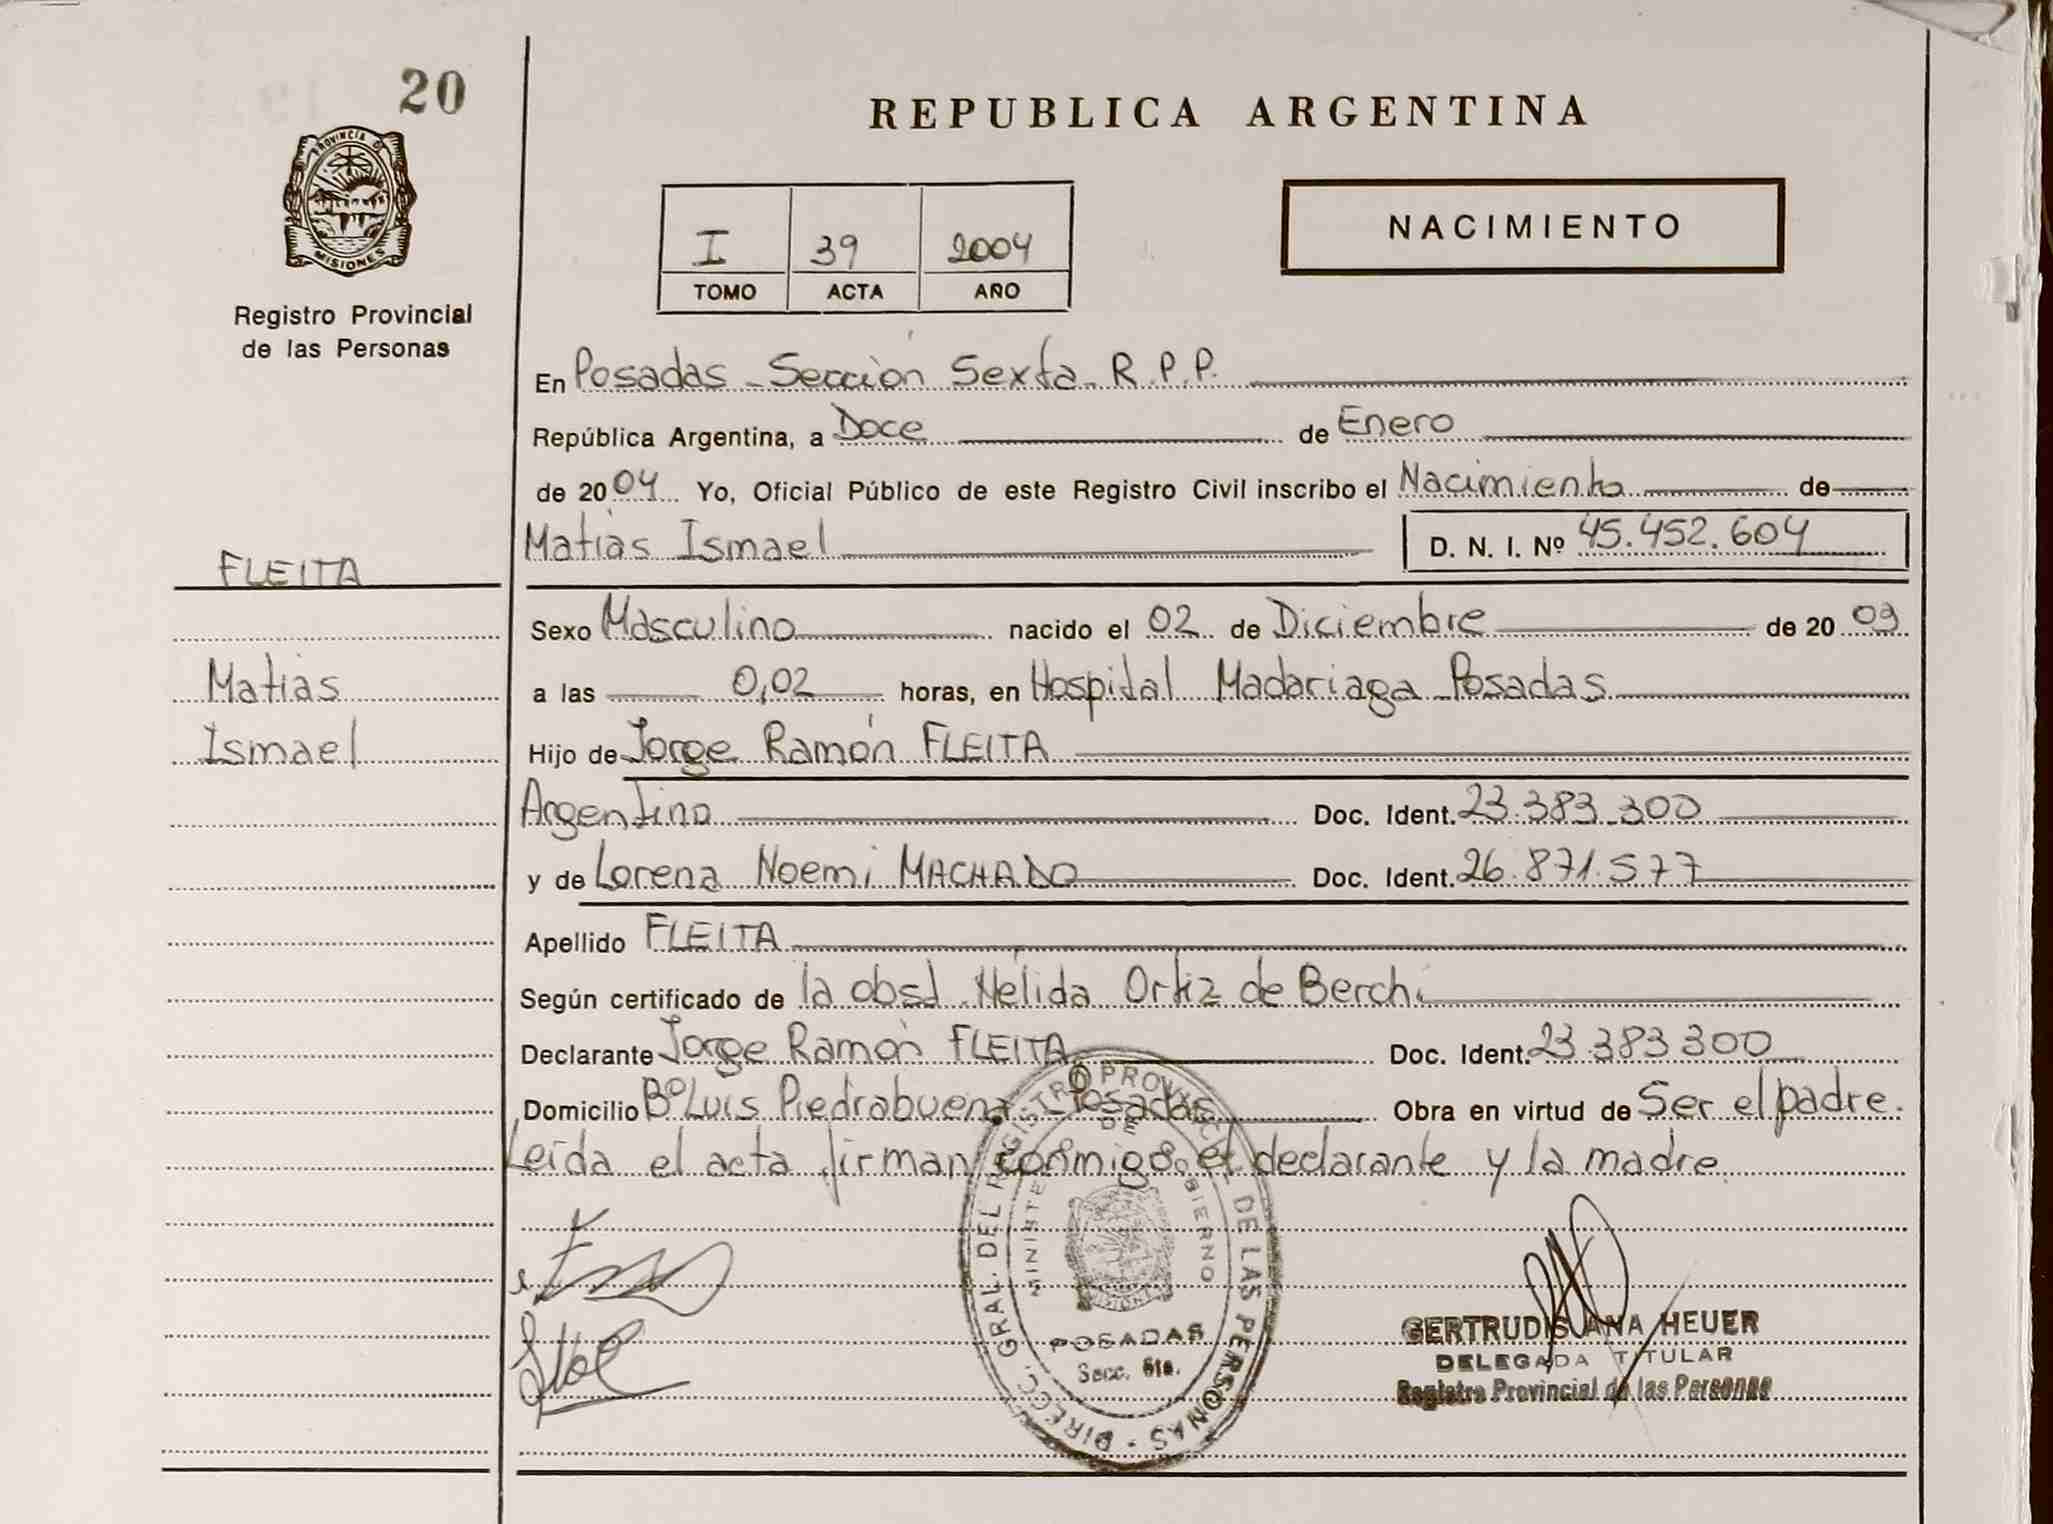 20
PROVINCIA DE
MISIONES
Registro Provincial
de las Personas
REPUBLICA ARGENTINA
I 39 2004
TOMO ACTA AÑO
NACIMIENTO
En Posadas - Sección Sexta. R.P.P.
República Argentina, a Doce de Enero
de 2004 Yo, Oficial Público de este Registro Civil inscribo el Nacimiento de
Matías Ismael D. N. I. Nº 45.452.604
FLEITA
Matias
Ismael
Sexo Masculino nacido el 02 de Diciembre de 20 03
a las 0,02 horas, en Hospital Madariaga Posadas
Hijo de Jorge Ramón FLEITA
Argentino Doc. Ident. 23.383.300
y de Lorena Noemi MACHADO Doc. Ident. 26.871.577
Apellido FLEITA
Según certificado de la obst. Nélida Ortiz de Berchi
Declarante Jorge Ramón FLEITA Doc. Ident. 23 383 300
Domicilio Bº Luis Piedrabuena - Posadas Obra en virtud de Ser el padre.
Leída el acta firman conmigo el declarante y la madre.
DIRECC. GRAL. DEL REGISTRO PROVINCIAL DE LAS PERSONAS
MINISTERIO DE GOBIERNO
MISIONES
POSADAS
Secc. 6ta.
GERTRUDIS ANA HEUER
DELEGADA TITULAR
Registro Provincial de las Personas